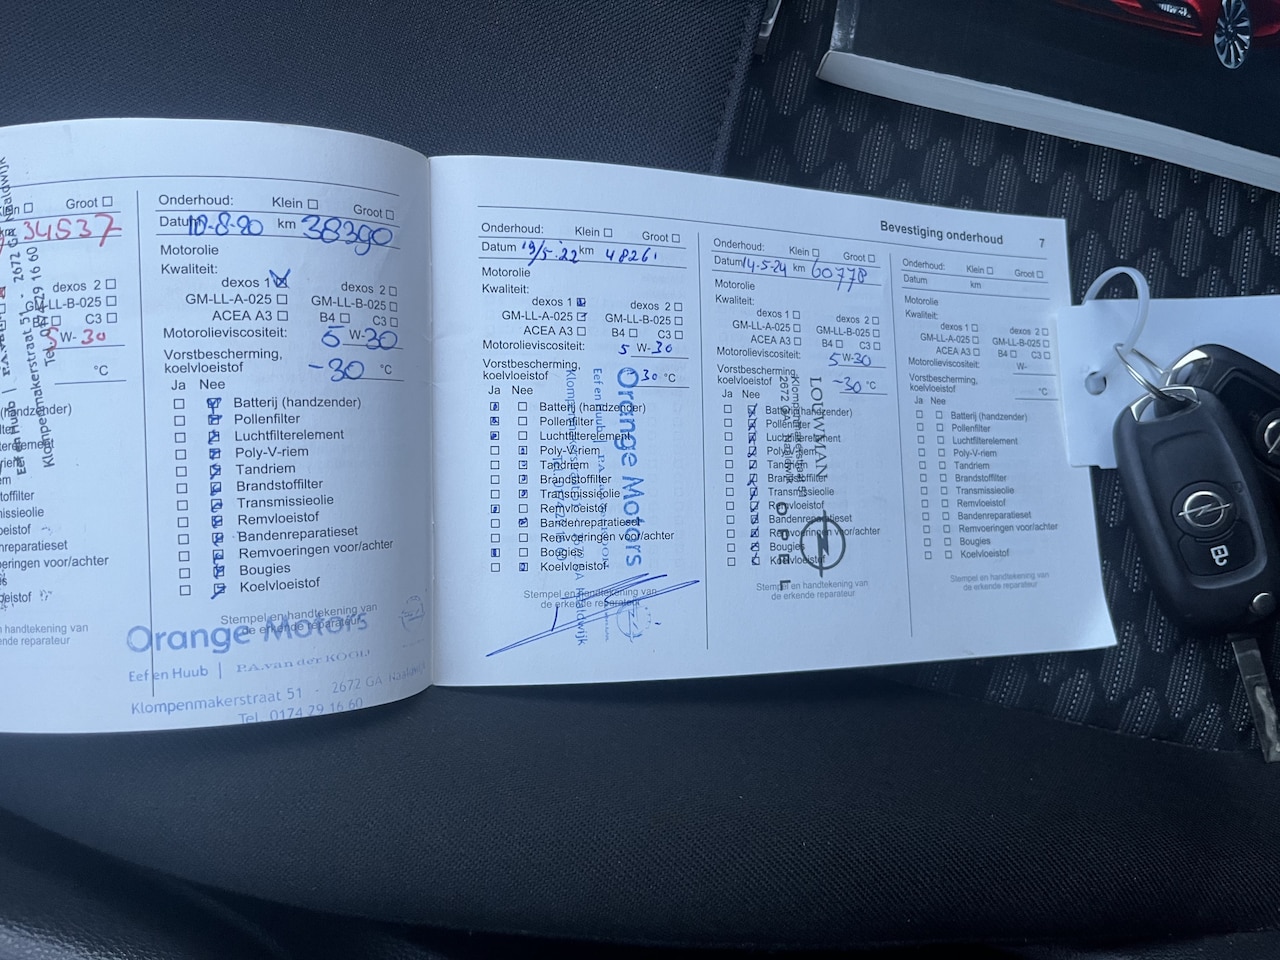 Groot
34537
dexos 2
GM-LL-B-025
C3
5 W-30
°C
Klompenmakerstraat 51 - 2672 GA Naaldwijk
Onderhoud: Klein Groot
Datum 10-8-20 km 38390
Motorolie
Kwaliteit:
dexos 1 dexos 2
GM-LL-A-025 GM-LL-B-025
ACEA A3 B4 C3
Motorolieviscositeit: 5 W-30
Vorstbescherming,
koelvloeistof -30 °C
Ja Nee
Batterij (handzender)
Pollenfilter
Luchtfilterelement
Poly-V-riem
Tandriem
Brandstoffilter
Transmissieolie
Remvloeistof
Bandenreparatieset
Remvoeringen voor/achter
Bougies
Koelvloeistof
Stempel en handtekening van
de erkende reparateur
Orange Motors
Eef en Huub | P.A. van der KOOIJ
Klompenmakerstraat 51 - 2672 GA Naaldwijk
Tel. 0174 29 16 60
Onderhoud: Klein Groot
Datum 19/5-22 km 48261
Motorolie
Kwaliteit:
dexos 1 dexos 2
GM-LL-A-025 GM-LL-B-025
ACEA A3 B4 C3
Motorolieviscositeit: 5 W-30
Vorstbescherming,
koelvloeistof 30 °C
Ja Nee
Batterij (handzender)
Pollenfilter
Luchtfilterelement
Poly-V-riem
Tandriem
Brandstoffilter
Transmissieolie
Remvloeistof
Bandenreparatieset
Remvoeringen voor/achter
Bougies
Koelvloeistof
Stempel en handtekening van
de erkende reparateur
Orange Motors
Eef en Huub
Bevestiging onderhoud 7
Onderhoud: Klein Groot
Datum 14-5-24 km 60778
Motorolie
Kwaliteit:
dexos 1 dexos 2
GM-LL-A-025 GM-LL-B-025
ACEA A3 B4 C3
Motorolieviscositeit: 5 W-30
Vorstbescherming,
koelvloeistof -30 °C
Ja Nee
Batterij (handzender)
Pollenfilter
Luchtfilterelement
Poly-V-riem
Tandriem
Brandstoffilter
Transmissieolie
Remvloeistof
Bandenreparatieset
Remvoeringen voor/achter
Bougies
Koelvloeistof
Stempel en handtekening van
de erkende reparateur
LOUWMAN
Klompenmakerstraat 51
2672 GA Naaldwijk
OPEL
Onderhoud: Klein Groot
Datum km
Motorolie
Kwaliteit:
dexos 1 dexos 2
GM-LL-A-025 GM-LL-B-025
ACEA A3 B4 C3
Motorolieviscositeit: W-
Vorstbescherming,
koelvloeistof °C
Ja Nee
Batterij (handzender)
Pollenfilter
Luchtfilterelement
Poly-V-riem
Tandriem
Brandstoffilter
Transmissieolie
Remvloeistof
Bandenreparatieset
Remvoeringen voor/achter
Bougies
Koelvloeistof
Stempel en handtekening van
de erkende reparateur